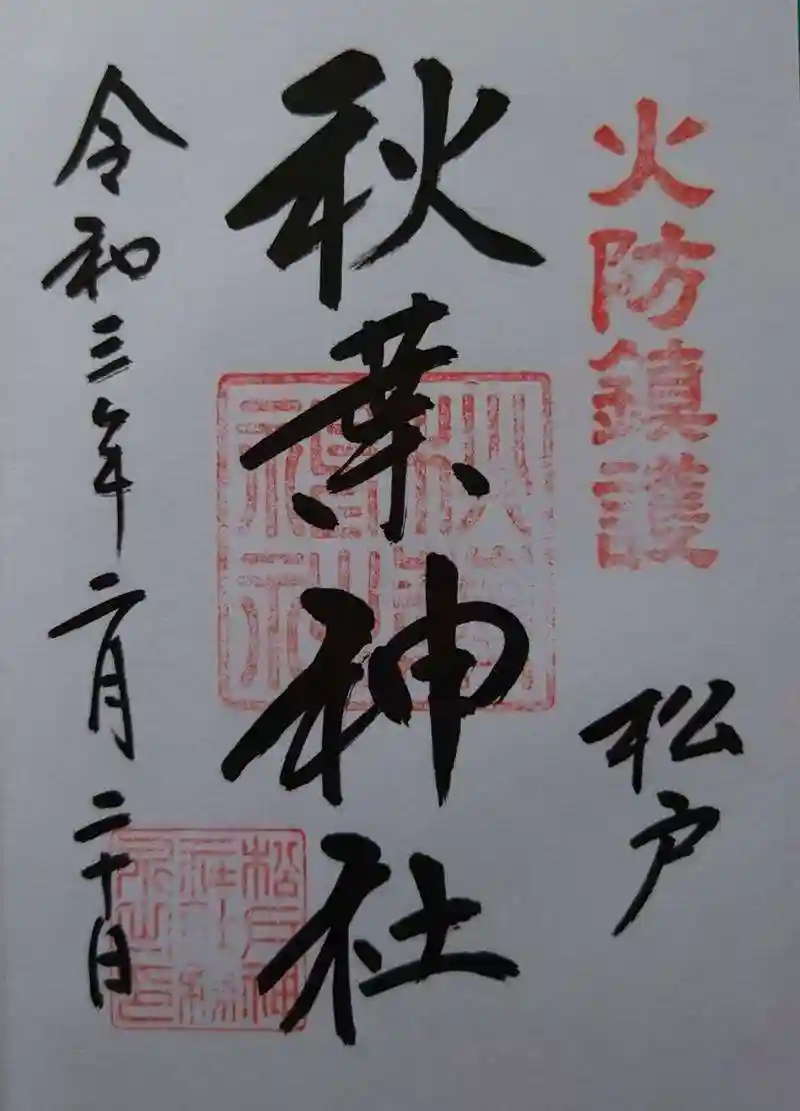 火防鎮護
松戸
秋葉神社
秋葉神社
令和三年二月二十日